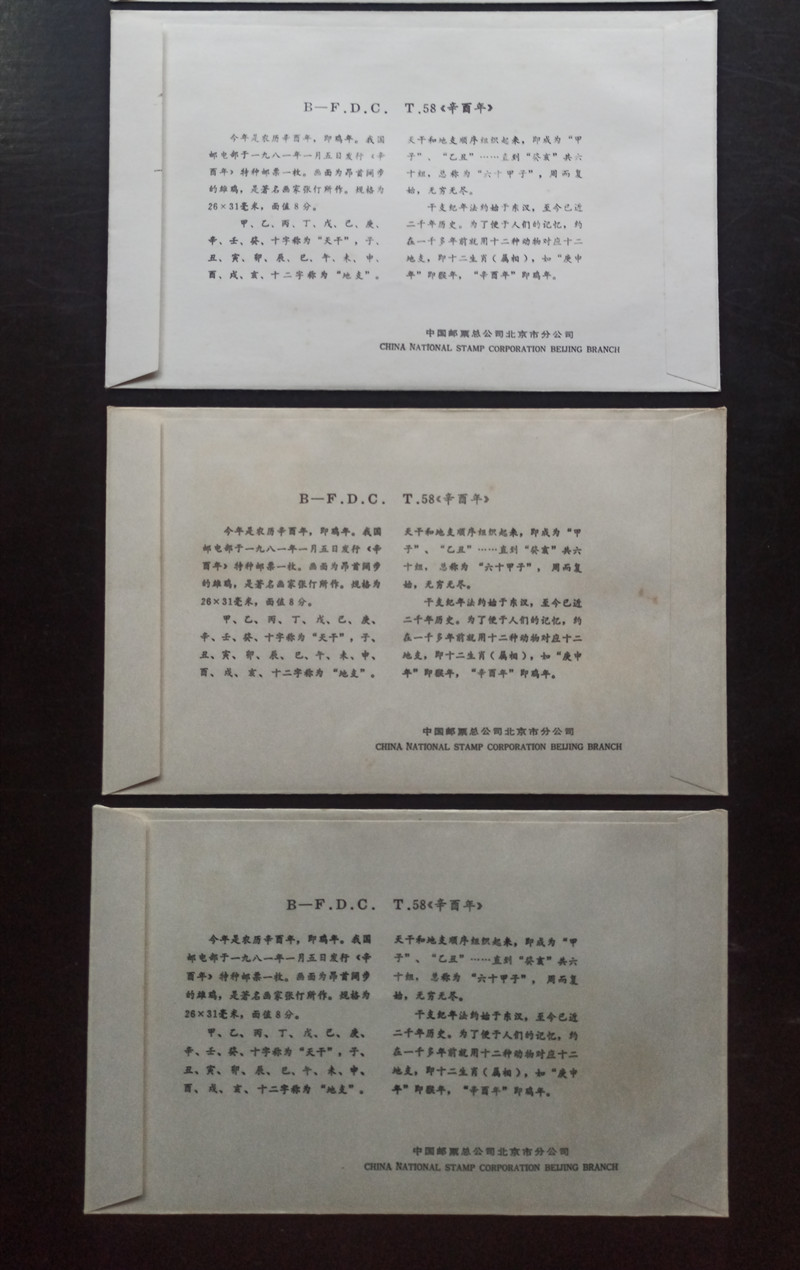 B—F.D.C. T.58《辛酉年》
今年是农历辛酉年，即鸡年。我国
邮电部于一九八一年一月五日发行《辛
酉年》特种邮票一枚。画面为昂首阔步
的雄鸡，是著名画家张仃所作。规格为
26×31毫米，面值8分。
甲、乙、丙、丁、戊、已、庚、
辛、壬、癸、十字称为“天干”，子、
丑、寅、卯、辰、巳、午、未、申、
酉、戌、亥、十二字称为“地支”。
天干和地支顺序组织起来，即成为“甲
子”、“乙丑”……直到“癸亥”共六
十组，总称为“六十甲子”，周而复
始，无穷无尽。
干支纪年法约始于东汉，至今已近
二千年历史。为了便于人们的记忆，约
在一千多年前就用十二种动物对应十二
地支，即十二生肖（属相），如“庚申
年”即猴年，“辛酉年”即鸡年。
中国邮票总公司北京市分公司
CHINA NATIONAL STAMP CORPORATION BEIJING BRANCH
B—F.D.C. T.58《辛酉年》
今年是农历辛酉年，即鸡年。我国
邮电部于一九八一年一月五日发行《辛
酉年》特种邮票一枚。画面为昂首阔步
的雄鸡，是著名画家张仃所作。规格为
26×31毫米，面值8分。
甲、乙、丙、丁、戊、已、庚、
辛、壬、癸、十字称为“天干”，子、
丑、寅、卯、辰、巳、午、未、申、
酉、戌、亥、十二字称为“地支”。
天干和地支顺序组织起来，即成为“甲
子”、“乙丑”……直到“癸亥”共六
十组，总称为“六十甲子”，周而复
始，无穷无尽。
干支纪年法约始于东汉，至今已近
二千年历史。为了便于人们的记忆，约
在一千多年前就用十二种动物对应十二
地支，即十二生肖（属相），如“庚申
年”即猴年，“辛酉年”即鸡年。
中国邮票总公司北京市分公司
CHINA NATIONAL STAMP CORPORATION BEIJING BRANCH
B—F.D.C. T.58《辛酉年》
今年是农历辛酉年，即鸡年。我国
邮电部于一九八一年一月五日发行《辛
酉年》特种邮票一枚。画面为昂首阔步
的雄鸡，是著名画家张仃所作。规格为
26×31毫米，面值8分。
甲、乙、丙、丁、戊、已、庚、
辛、壬、癸、十字称为“天干”，子、
丑、寅、卯、辰、巳、午、未、申、
酉、戌、亥、十二字称为“地支”。
天干和地支顺序组织起来，即成为“甲
子”、“乙丑”……直到“癸亥”共六
十组，总称为“六十甲子”，周而复
始，无穷无尽。
干支纪年法约始于东汉，至今已近
二千年历史。为了便于人们的记忆，约
在一千多年前就用十二种动物对应十二
地支，即十二生肖（属相），如“庚申
年”即猴年，“辛酉年”即鸡年。
中国邮票总公司北京市分公司
CHINA NATIONAL STAMP CORPORATION BEIJING BRANCH